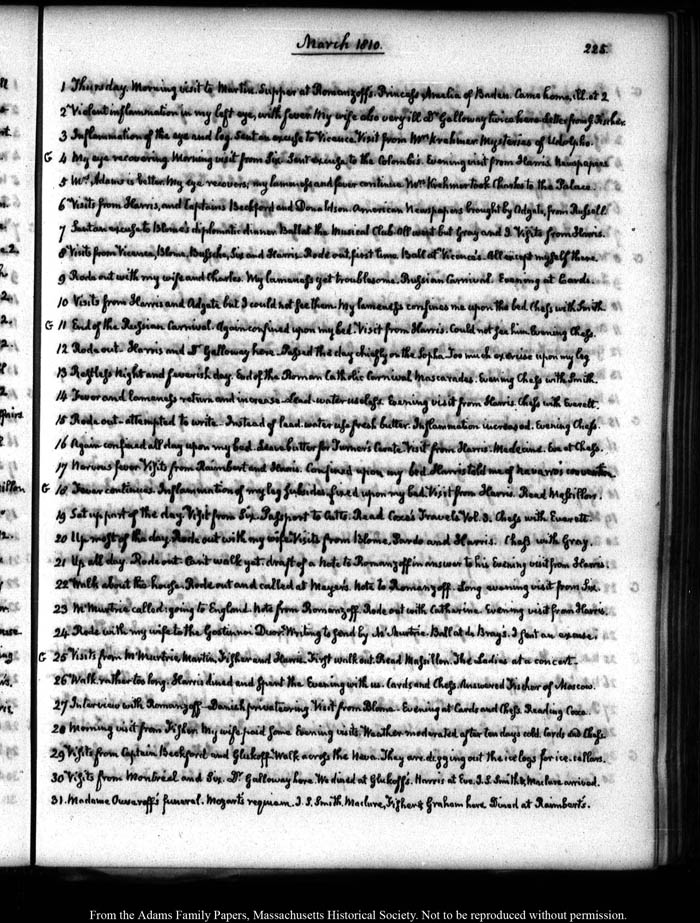 March 1810.
225.
1 Thursday. Morning visit to Martin. Supper at Romanzoff's. Princess Amelia of Baden. Came home, ill. at 2
2 Violent inflammation in my left eye, with fever. My wife also very ill. Dr. Galloway twice here. Letter from J. Fischer.
3 Inflammation of the eye and leg. Sent an excuse to Vicence. Visit from Mrs. Krehmer. Mysteries of Udolpho.
G 4 My eye recovering. Morning visit from Six. Sent excuse to the Colombi's. Evening visit from Harris. Newspapers
5 Mrs. Adams is better. My eye recovers; my lameness and fever continue. Mrs. Krehmer took Charles to the Palace.
6 Visits from Harris, and Captains Beckford and Donaldson. American Newspapers brought by Adgate, from Russell.
7 Sent an excuse to Blome's diplomatic dinner. Ball at the Musical Club. All went but Gray and I. Visits from Harris.
8 Visits from Vicence, Blome, Bussche, Six and Harris. Rode out, first time. Ball at Vicence's. All except myself there.
9 Rode out with my wife and Charles. My lameness yet troublesome. Russian Carnival. Evening at Cards.
10 Visits from Harris and Adgate but I could not see them. My lameness confines me upon the bed. Chess with Smith.
G 11 End of the Russian Carnival. Again confined upon my bed. Visit from Harris. Could not see him. Evening Chess.
12 Rode out. Harris and Dr. Galloway here. Passed the day chiefly on the Sopha. Too much exercise upon my leg
13 Restless Night and feverish day. End of the Roman Catholic Carnival Mascarades. Evening Chess with Smith.
14 Fever and lameness return and increase. Lead-water useless. Evening visit from Harris. Chess with Everett.
15 Rode out—attempted to write. Instead of lead-water use fresh butter. Inflammation increased. Evening Chess.
16 Again confined all day upon my bed. Leave butter for Turner's Cerate. Visit from Harris. Medecine. Eve at Chess.
17 Nervous fever. Visits from Raimbert and Harris. Confined upon my bed. Harris told me of Navarro's
G 18 Fever continues. Inflammation of my leg subsides. fixed upon my bed. Visit from Harris. Read Massillon.
19 Sat up part of the day. Visit from Six. Passport to Cutts. Read Coxe's Travels Vol. 3. Chess with Everett.
20 Up most of the day. Rode out with my wife. Visits from Blome, Pardo and Harris. Chess with Gray.
21 Up all day. Rode out. Can't walk yet. draft of a Note to Romanzoff in answer to his. Evening visit from Harris.
22 Walk about the house. Rode out and called at Meyer's. Note to Romanzoff. Long evening visit from Six.
23 McMurtrie called: going to England. Note from Romanzoff. Rode out with Catherine. Evening visit from Harris.
24 Rode with my wife to the Gostinnoi Dwor. Writing to send by McMurtrie. Ball at de Bray's. I sent an excuse.
G 25 Visits from McMurtrie, Martin, Fisher and Harris. First walk out. Read Massillon. The Ladies at a concert.
26 Walk rather too long. Harris dined and spent the Evening with us. Cards and Chess. Answered Fischer of Moscow.
27 Interview with Romanzoff—Danish privateering. Visit from Blome. Evening at Cards and Chess. Reading Coxe.
28 Morning visit from Fisher. My wife paid some Evening visits. Weather moderated after ten days cold. Cards and Chess.
29 Visits from Captain Beckford and Glukoff. Walk across the Neva. They are digging out the ice logs for ice-cellars.
30 Visits from Montréal and Six. Dr. Galloway here. We dined at Glukoff's. Harris at Eve. J. S. Smith & Maclure arrived.
31. Madame Ouvaroff's funeral. Mozart's requiem. J. S. Smith, Maclure, Fisher & Graham here. Dined at Raimbert's.
From the Adams Family Papers, Massachusetts Historical Society. Not to be reproduced without permission.